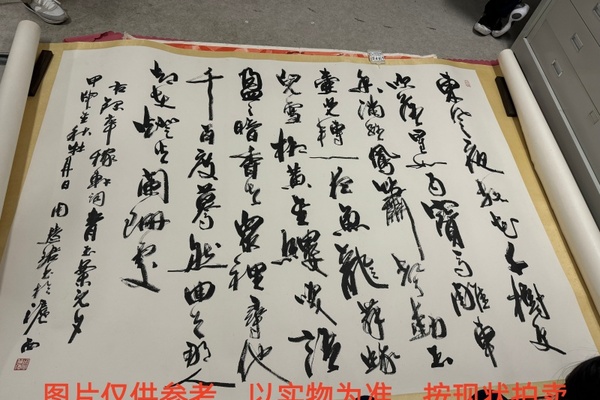 東风夜放花千樹更
吹落星如雨寶马雕車
香满路鳳簫聲動玉
壺光轉一夜魚龍舞蛾
兒雪柳黄金縷笑語
盈盈暗香去衆裡尋他
千百度驀然回首那人
却在燈火闌珊處
右録辛稼軒詞青玉案元夕
甲 秋 月日周 於滬西
图片仅供参考，以实物为准，按现状拍卖